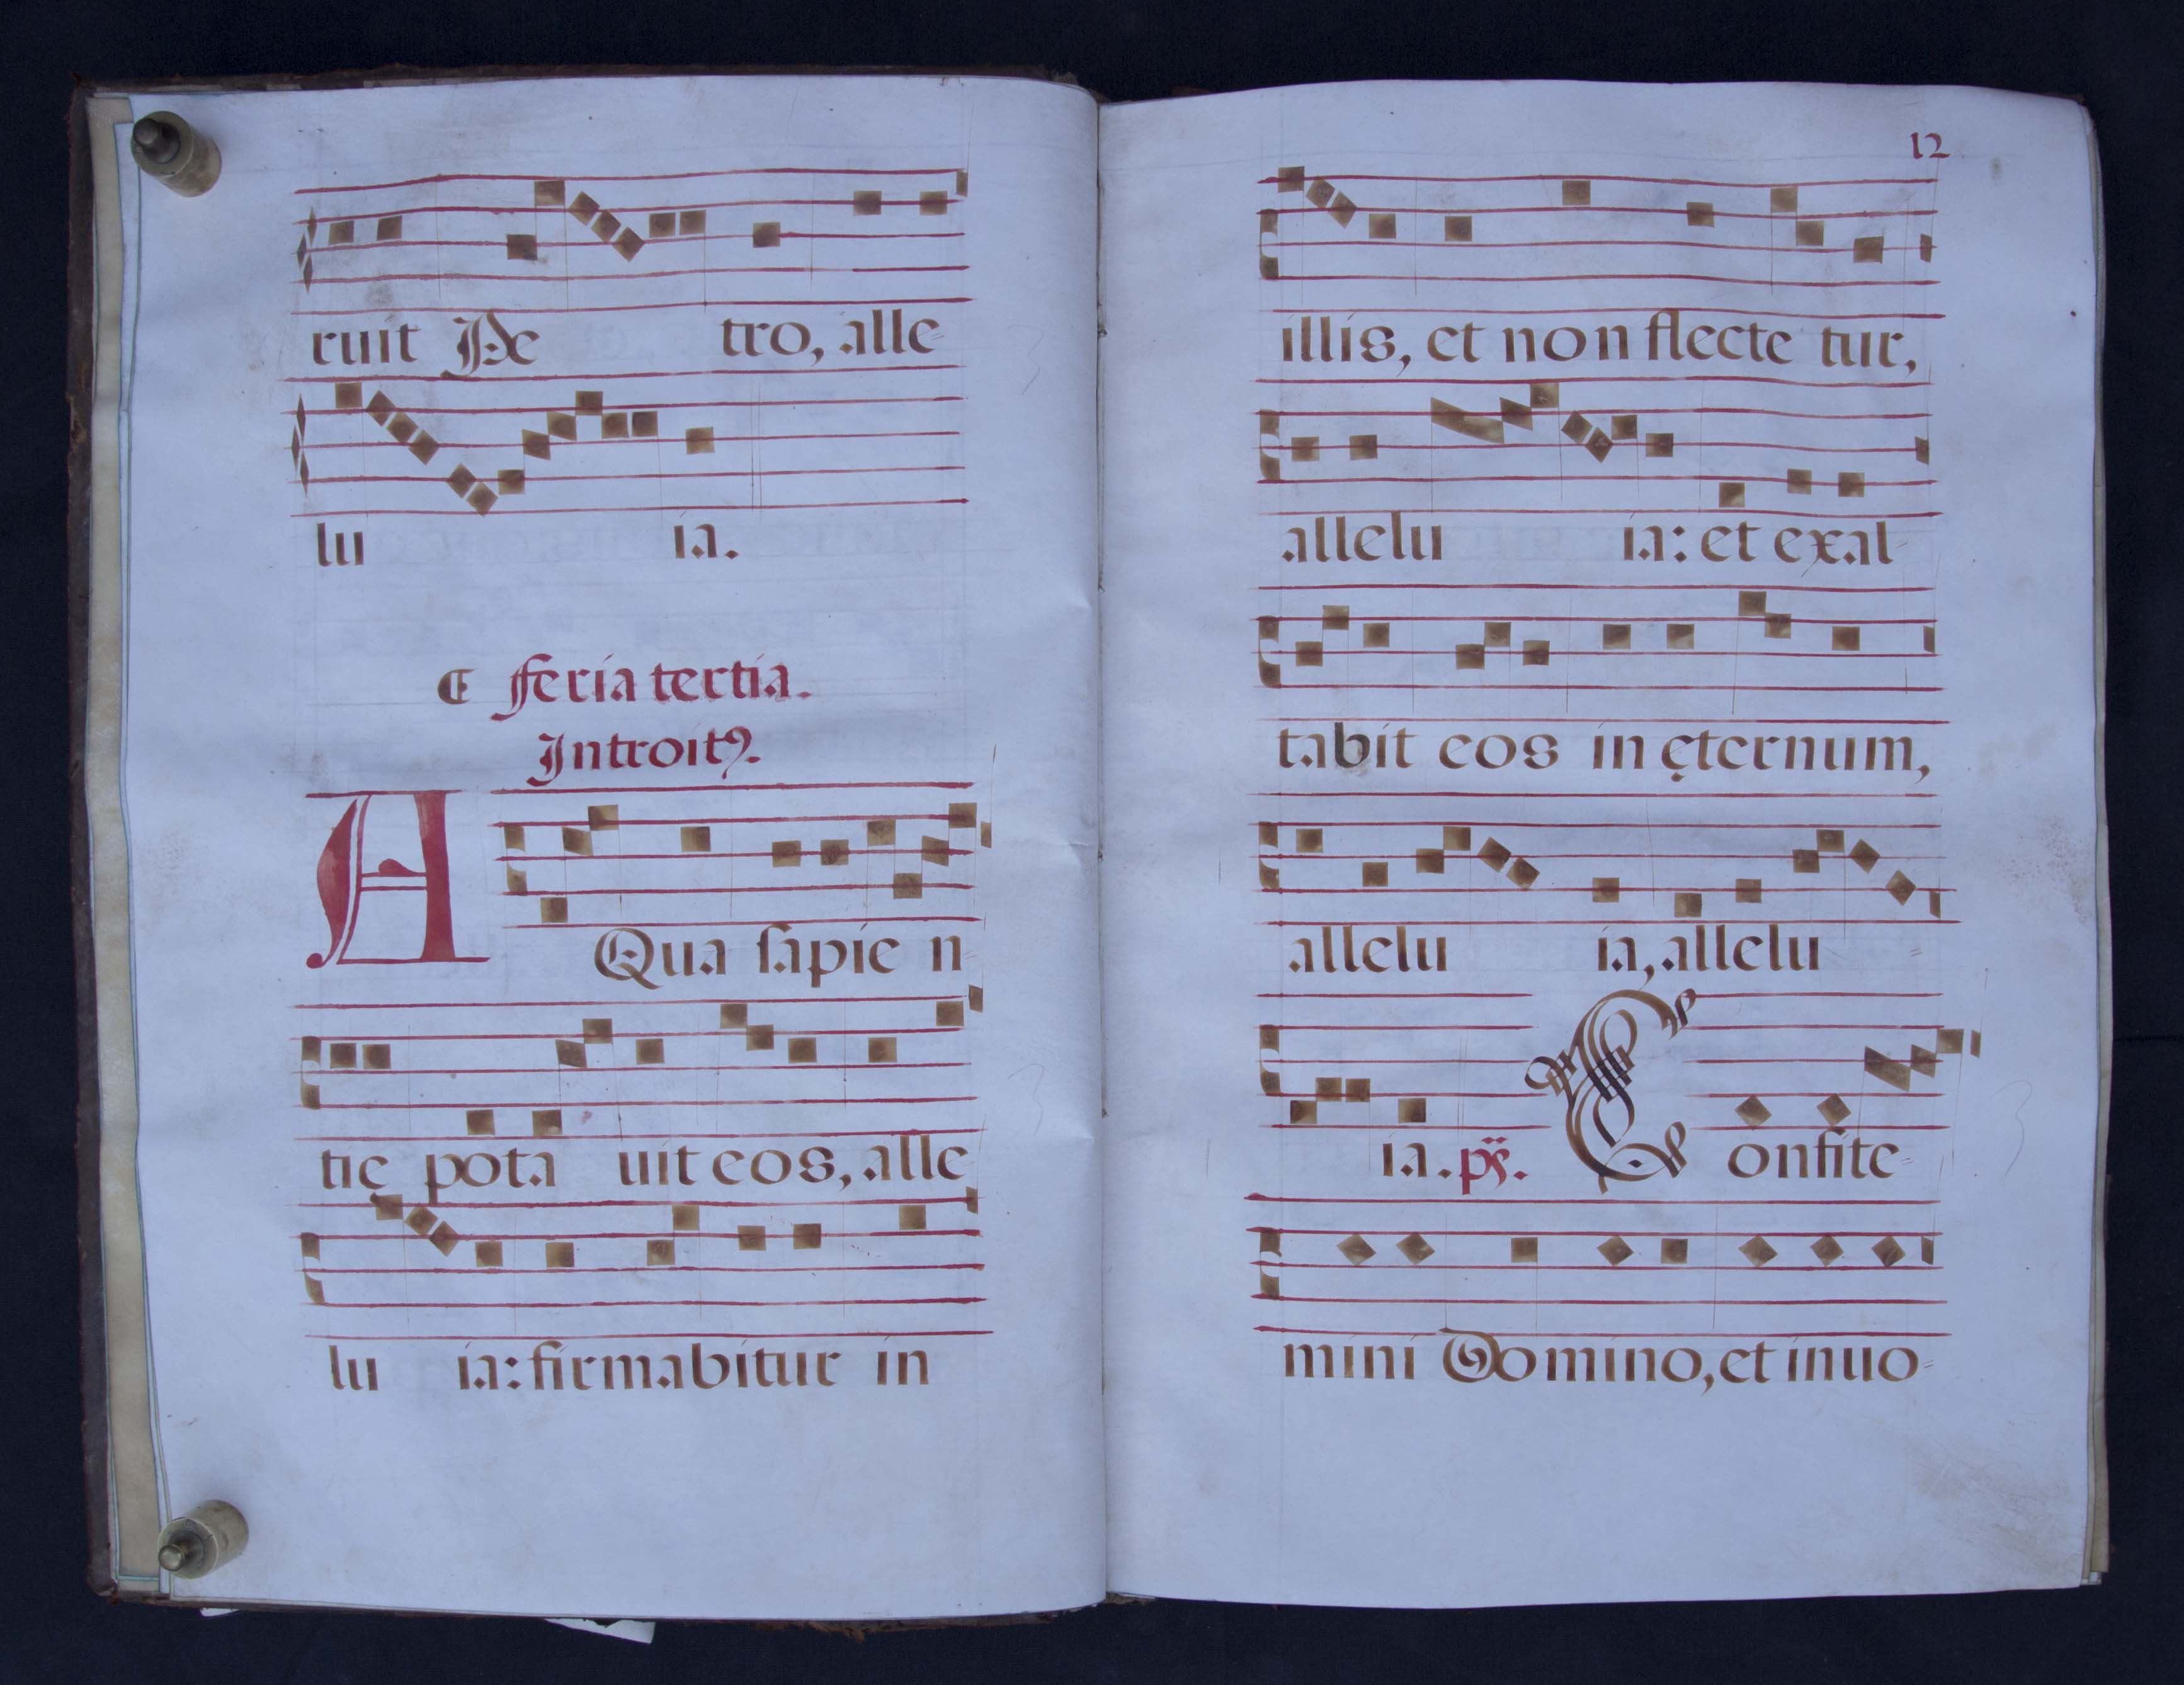 ruit Pe tro, alle
lu ia.
¶ Feria tertia.
Introitꝰ.
AQua sapie n
tię pota uit eos, alle
lu ia: firmabitur in
12
illis, et non flecte tur,
allelu ia: et exal
tabit eos in ęternum,
allelu ia, allelu
ia. ps. Confite
mini Domino, et inuo